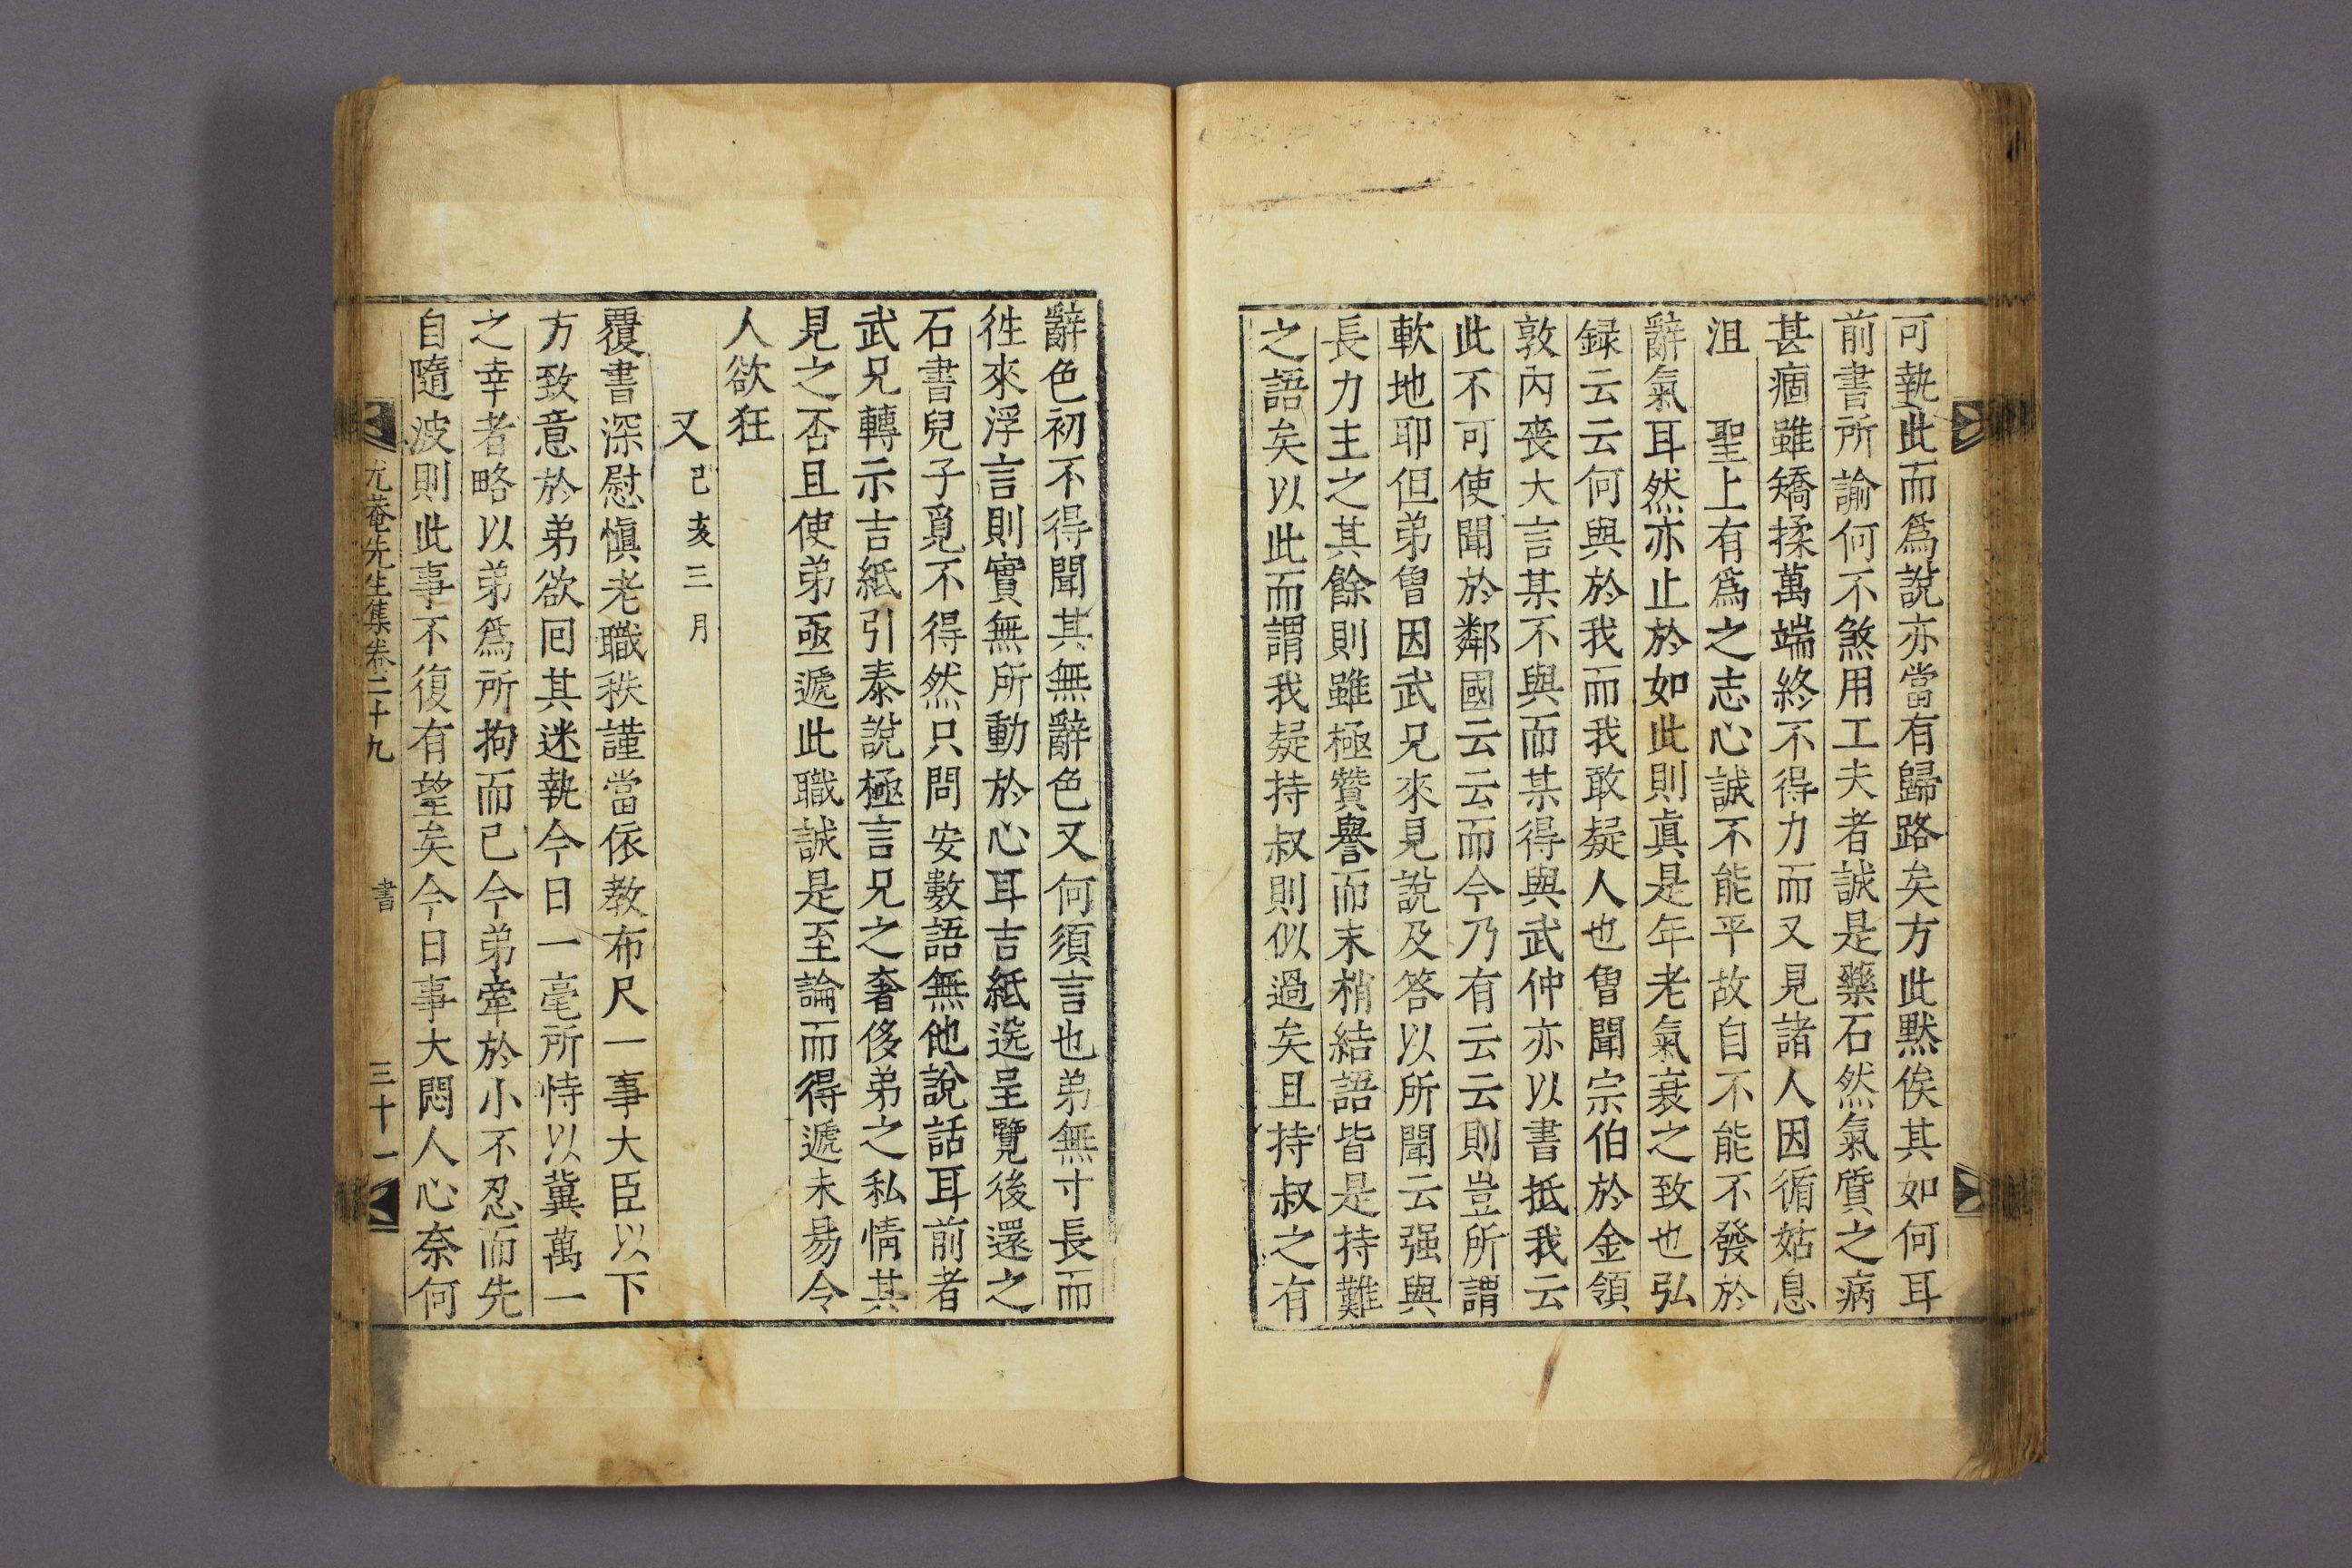 可執此而爲說亦當有歸路矣方此默俟其如何耳
前書所諭何不煞用工夫者誠是藥石然氣質之病
甚痼雖矯揉萬端終不得力而又見諸人因循姑息
沮　聖上有爲之志心誠不能平故自不能不發於
辭氣耳然亦止於如此則眞是年老氣衰之致也弘
録云云何與於我而我敢疑人也曾聞宗伯於金領
敦內喪大言某不與而某得與武仲亦以書抵我云
此不可使聞於鄰國云云而今乃有云云則豈所謂
軟地耶但弟曾因武兄來見說及答以所聞云强與
長力主之其餘則雖極贊譽而末梢結語皆是持難
之語矣以此而謂我疑持叔則似過矣且持叔之有
辭色初不得聞其無辭色又何須言也弟無寸長而
徃來浮言則實無所動於心耳吉紙选呈覽後還之
石書兒子覓不得然只問安數語無他說話耳前者
武兄轉示吉紙引泰說極言兄之奢侈弟之私情其
見之否且使弟亟遞此職誠是至論而得遞未易令
人欲狂
又己亥三月
覆書深慰愼老職秩謹當依教布尺一事大臣以下
方致意於弟欲囘其迷執今日一毫所恃以冀萬一
之幸者略以弟爲所拘而已今弟牽於小不忍而先
自隨波則此事不復有望矣今日事大悶人心奈何
尤菴先生集卷二十九　書　三十一